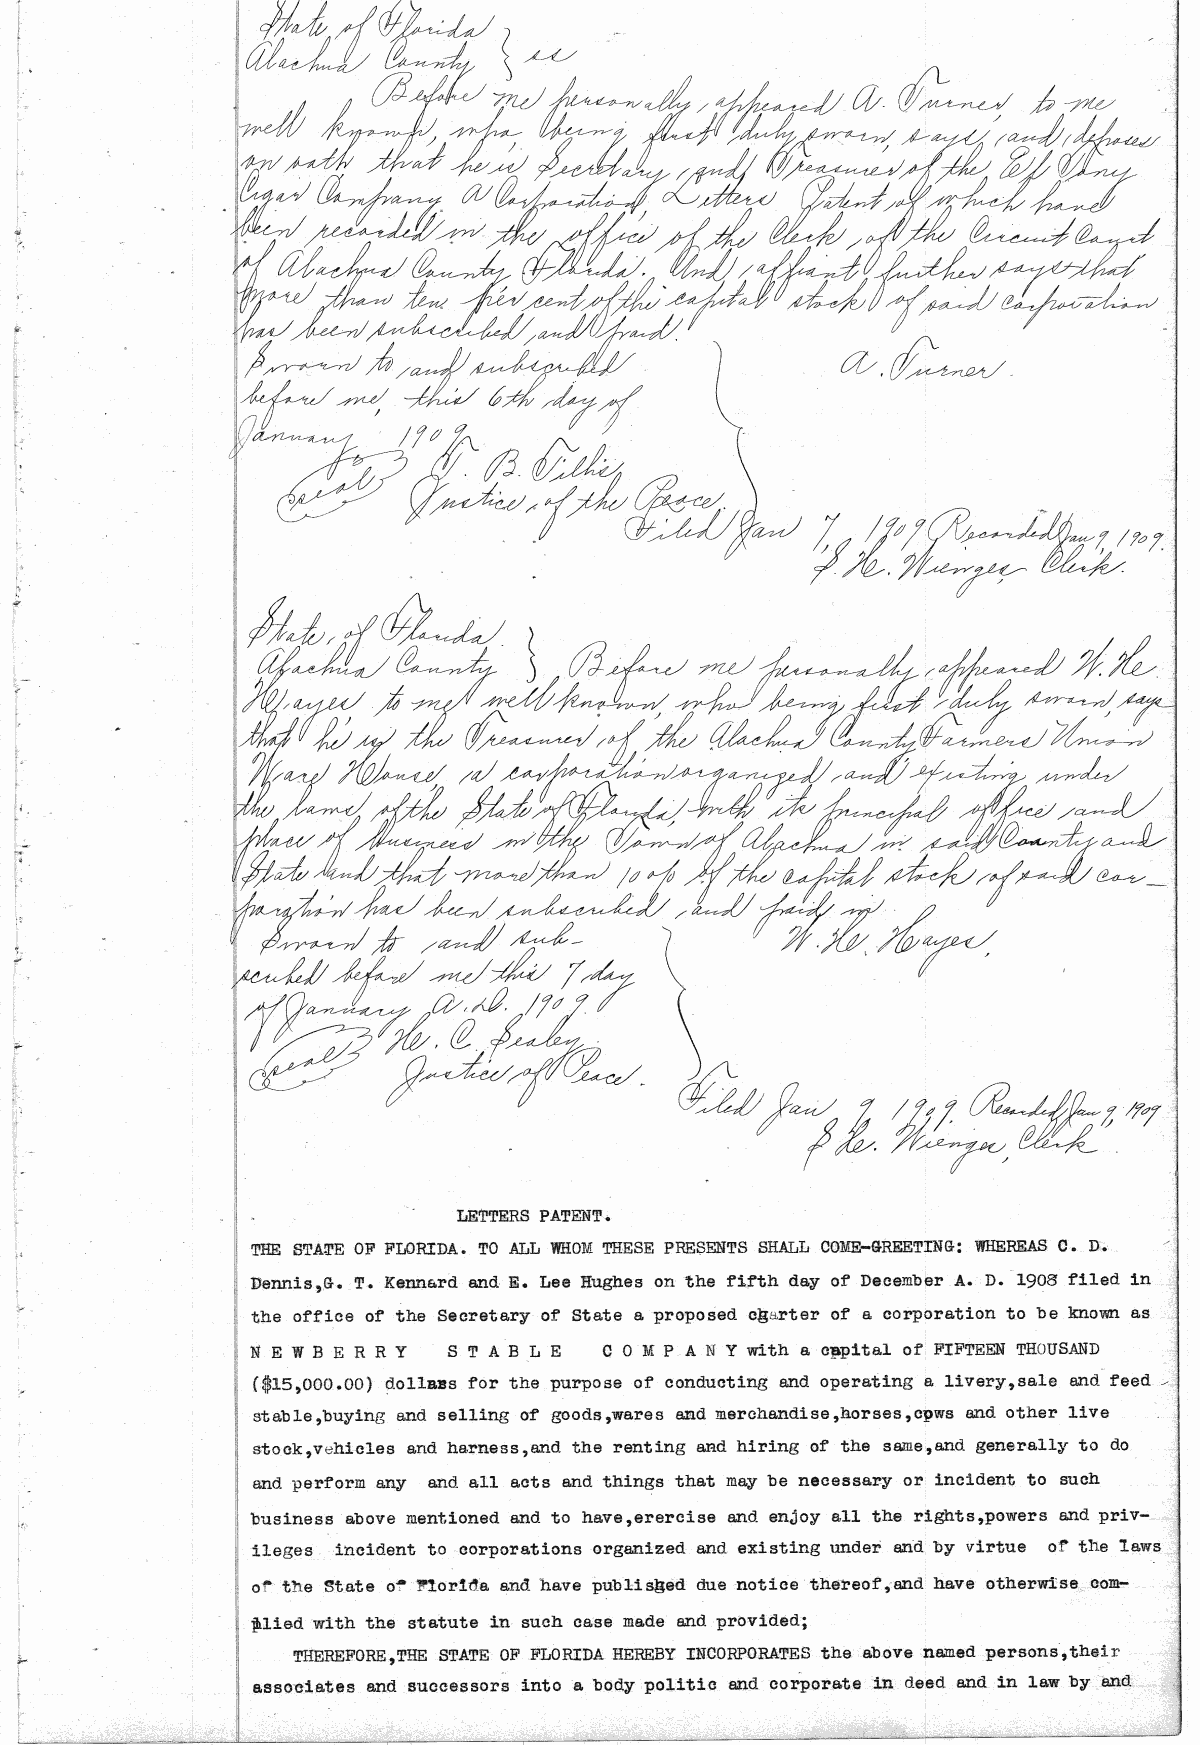 State of Florida
Alachua County } ss
Before me personally appeared A. Turner, to me
well known, who, being first duly sworn, says and deposes
on oath that he is Secretary and Treasurer of the El Tony
Cigar Company A Corporation, Letters Patent of which have
been recorded in the office of the Clerk of the Circuit Court
of Alachua County Florida. And affiant further says that
more than ten per cent of the capital stock of said corporation
has been subscribed and paid.
Sworn to and subscribed
before me, this 6th day of
January 1909
A. Turner.
T. B. Tillis,
seal
Justice of the Peace.
Filed Jan 7, 1909 Recorded Jan 9, 1909.
S. H. Wienges Clerk.
State of Florida
Alachua County } Before me personally appeared W. H.
Hayes, to me well known, who being first duly sworn, says
that he is the Treasurer of the Alachua County Farmers Union
Ware House, a corporation organized and existing under
the laws of the State of Florida, with its principal office and
place of business in the Town of Alachua in said County and
State and that more than 10 o/o of the capital stock of said cor-
poration has been subscribed and paid in
Sworn to and sub-
scribed before me this 7 day
of January A.D. 1909.
W. H. Hayes.
H. C. Sealey
seal
Justice of Peace.
Filed Jan 9 1909. Recorded Jan 9, 1909
S H. Wienges, Clerk
LETTERS PATENT.
THE STATE OF FLORIDA. TO ALL WHOM THESE PRESENTS SHALL COME-GREETING: WHEREAS C. D.
Dennis,G. T. Kennard and E. Lee Hughes on the fifth day of December A. D. 1908 filed in
the office of the Secretary of State a proposed charter of a corporation to be known as
N E W B E R R Y   S T A B L E   C O M P A N Y with a capital of FIFTEEN THOUSAND
($15,000.00) dollars for the purpose of conducting and operating a livery,sale and feed
stable,buying and selling of goods,wares and merchandise,horses,cows and other live
stock,vehicles and harness,and the renting and hiring of the same,and generally to do
and perform any and all acts and things that may be necessary or incident to such
business above mentioned and to have,erercise and enjoy all the rights,powers and priv-
ileges incident to corporations organized and existing under and by virtue of the laws
of the State of Florida and have published due notice thereof,and have otherwise com-
plied with the statute in such case made and provided;
THEREFORE,THE STATE OF FLORIDA HEREBY INCORPORATES the above named persons,their
associates and successors into a body politic and corporate in deed and in law by and